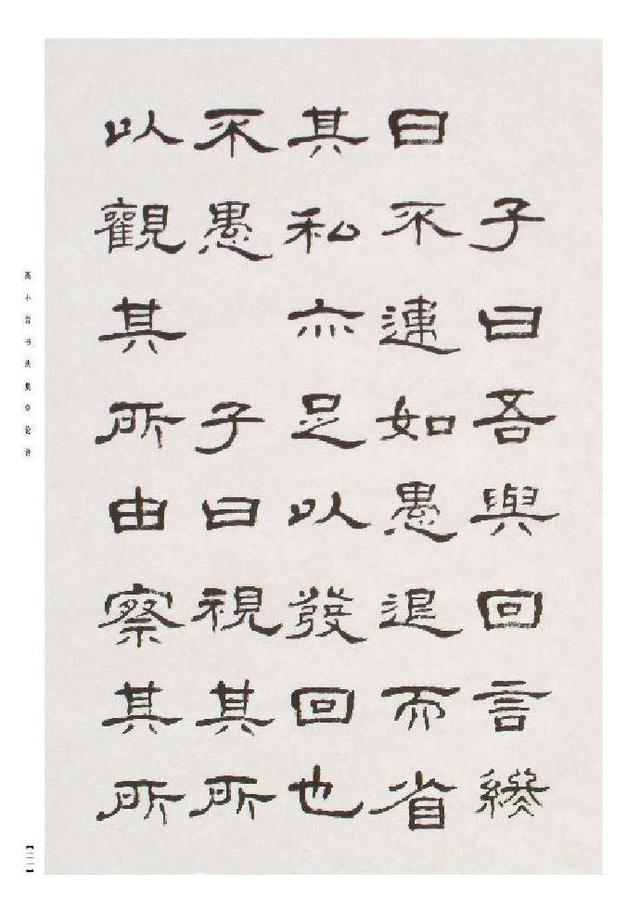 子曰吾與回言終
日不違如愚退而省
其私亦足以發回也
不愚 子曰視其所
以觀其所由察其所
高小岩书法集◎论语